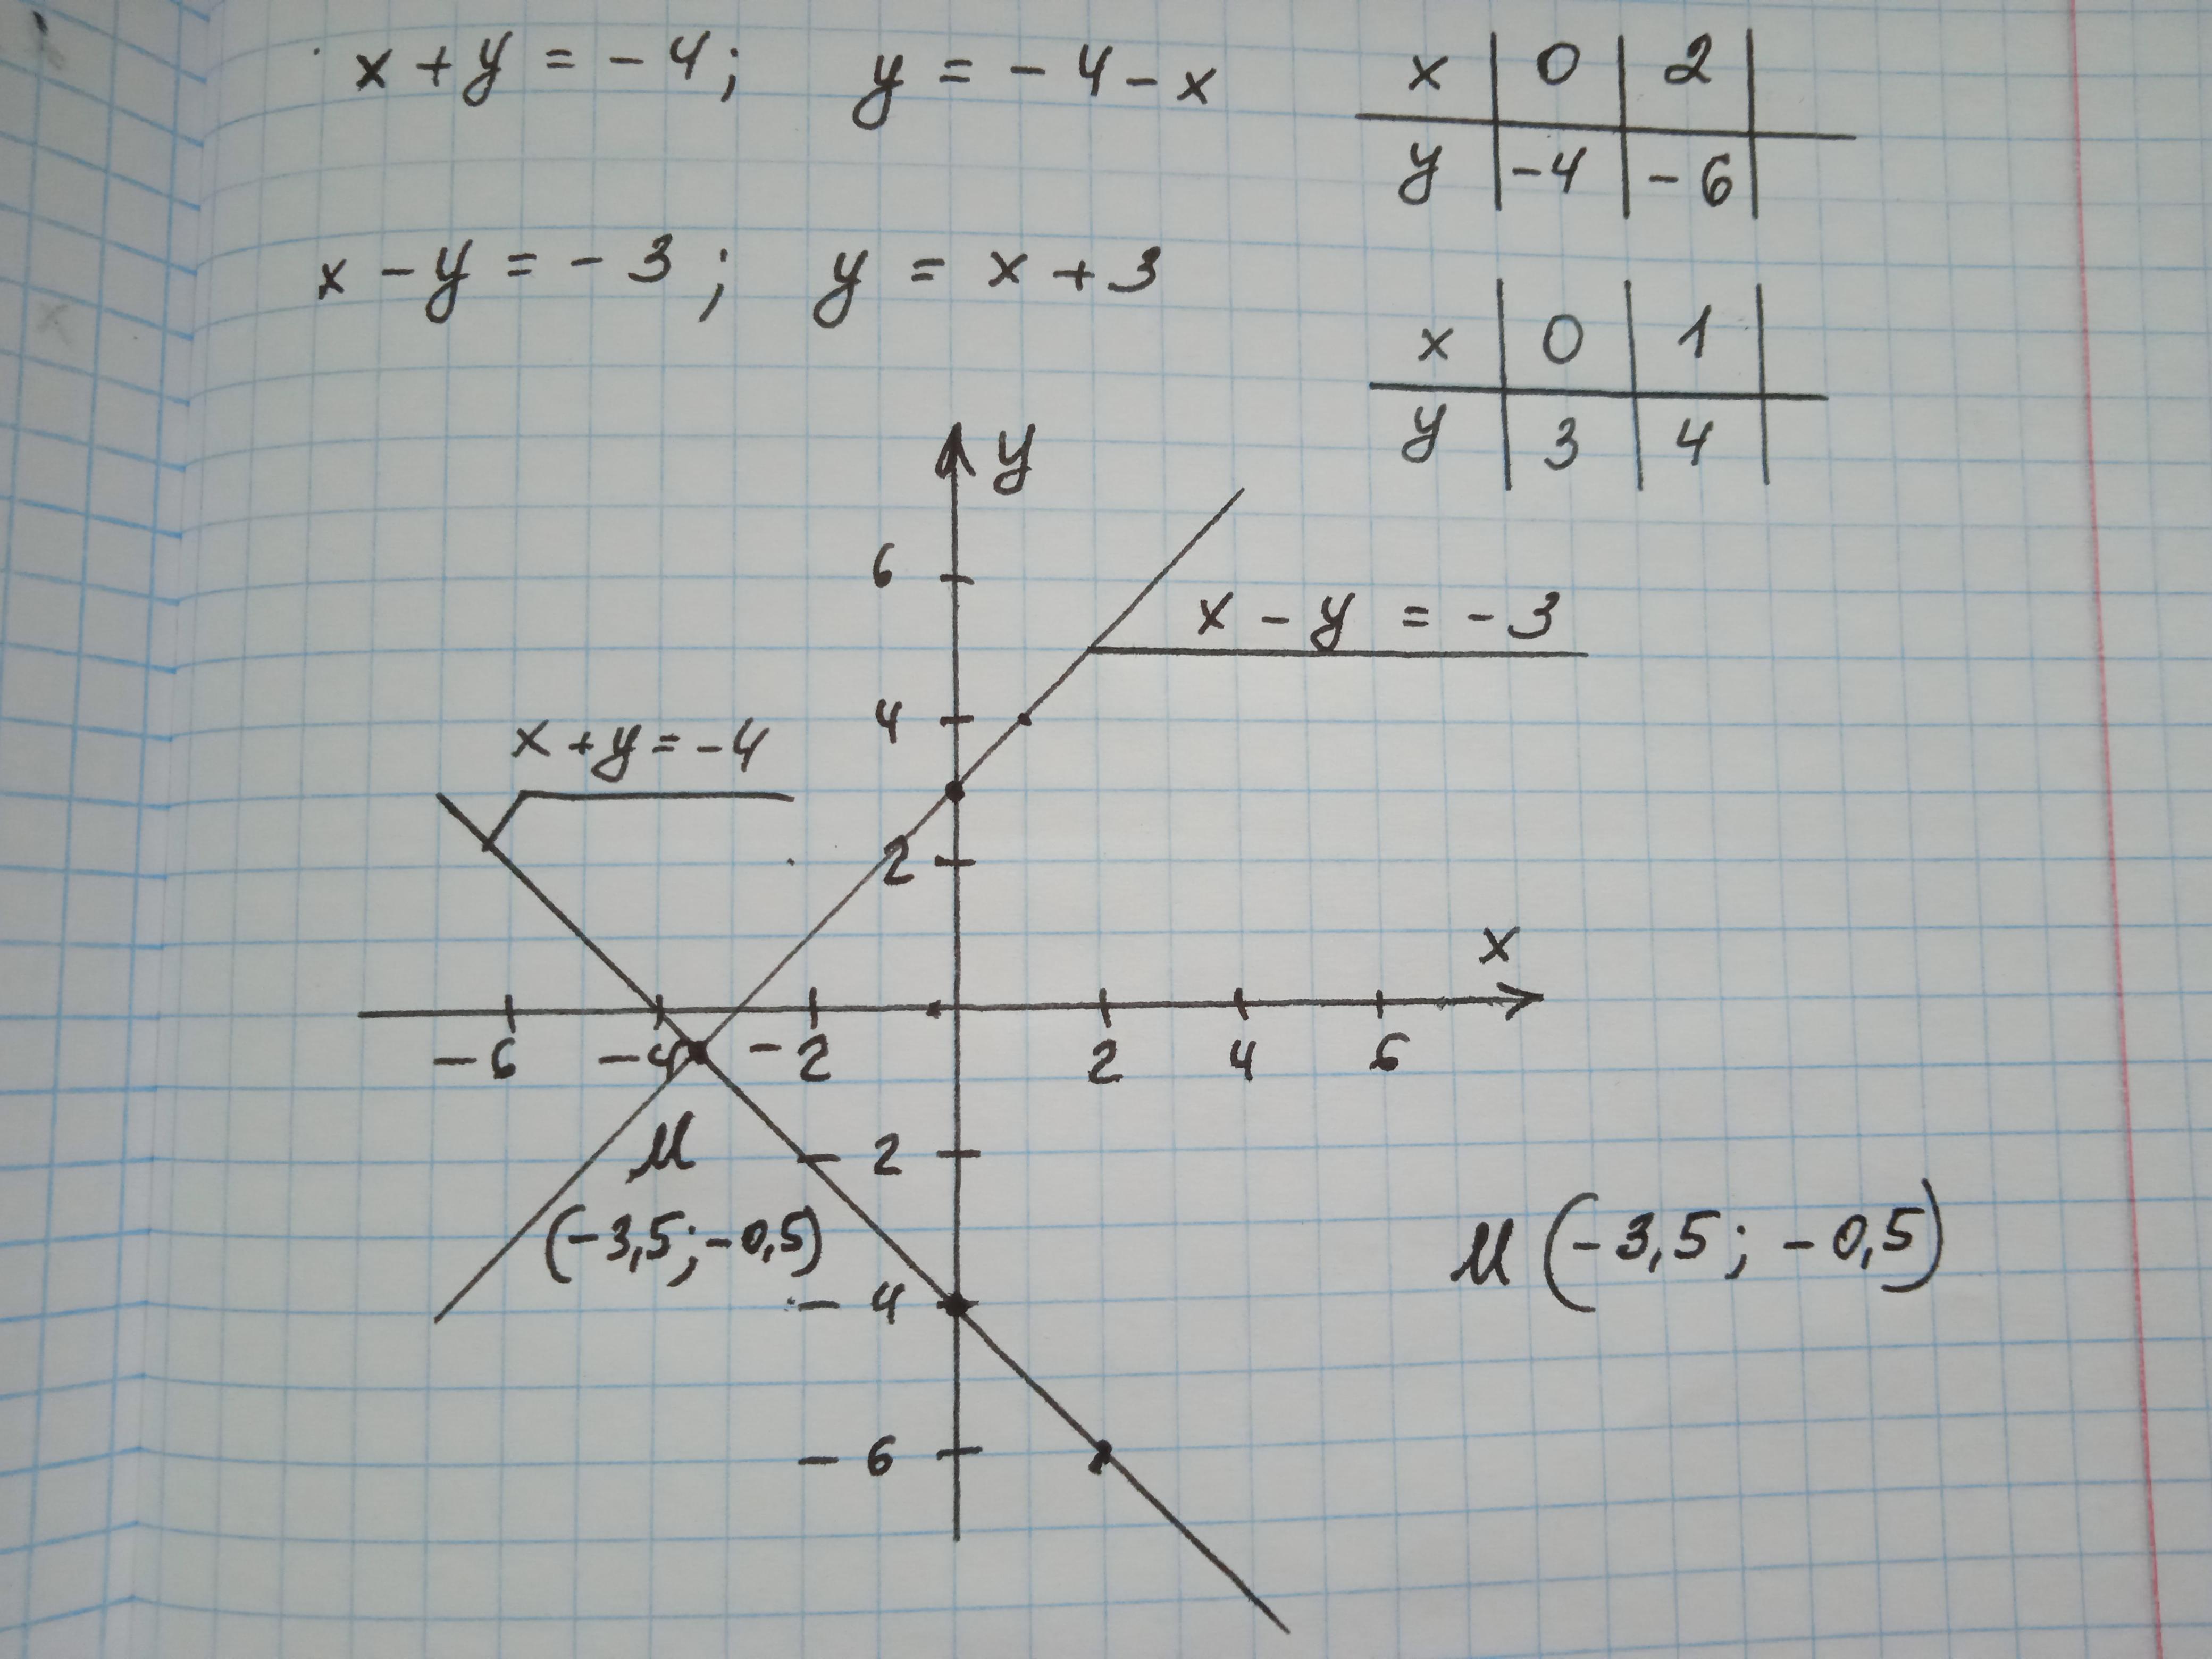 x + y = - 4; y = - 4 - x
x 0 2
y -4 -6
x - y = - 3; y = x + 3
x 0 1
y 3 4
y
6
x - y = - 3
4
x + y = - 4
2
x
-6 -4 -2 2 4 6
M
-2
(-3,5; -0,5)
M (-3,5; -0,5)
-4
-6